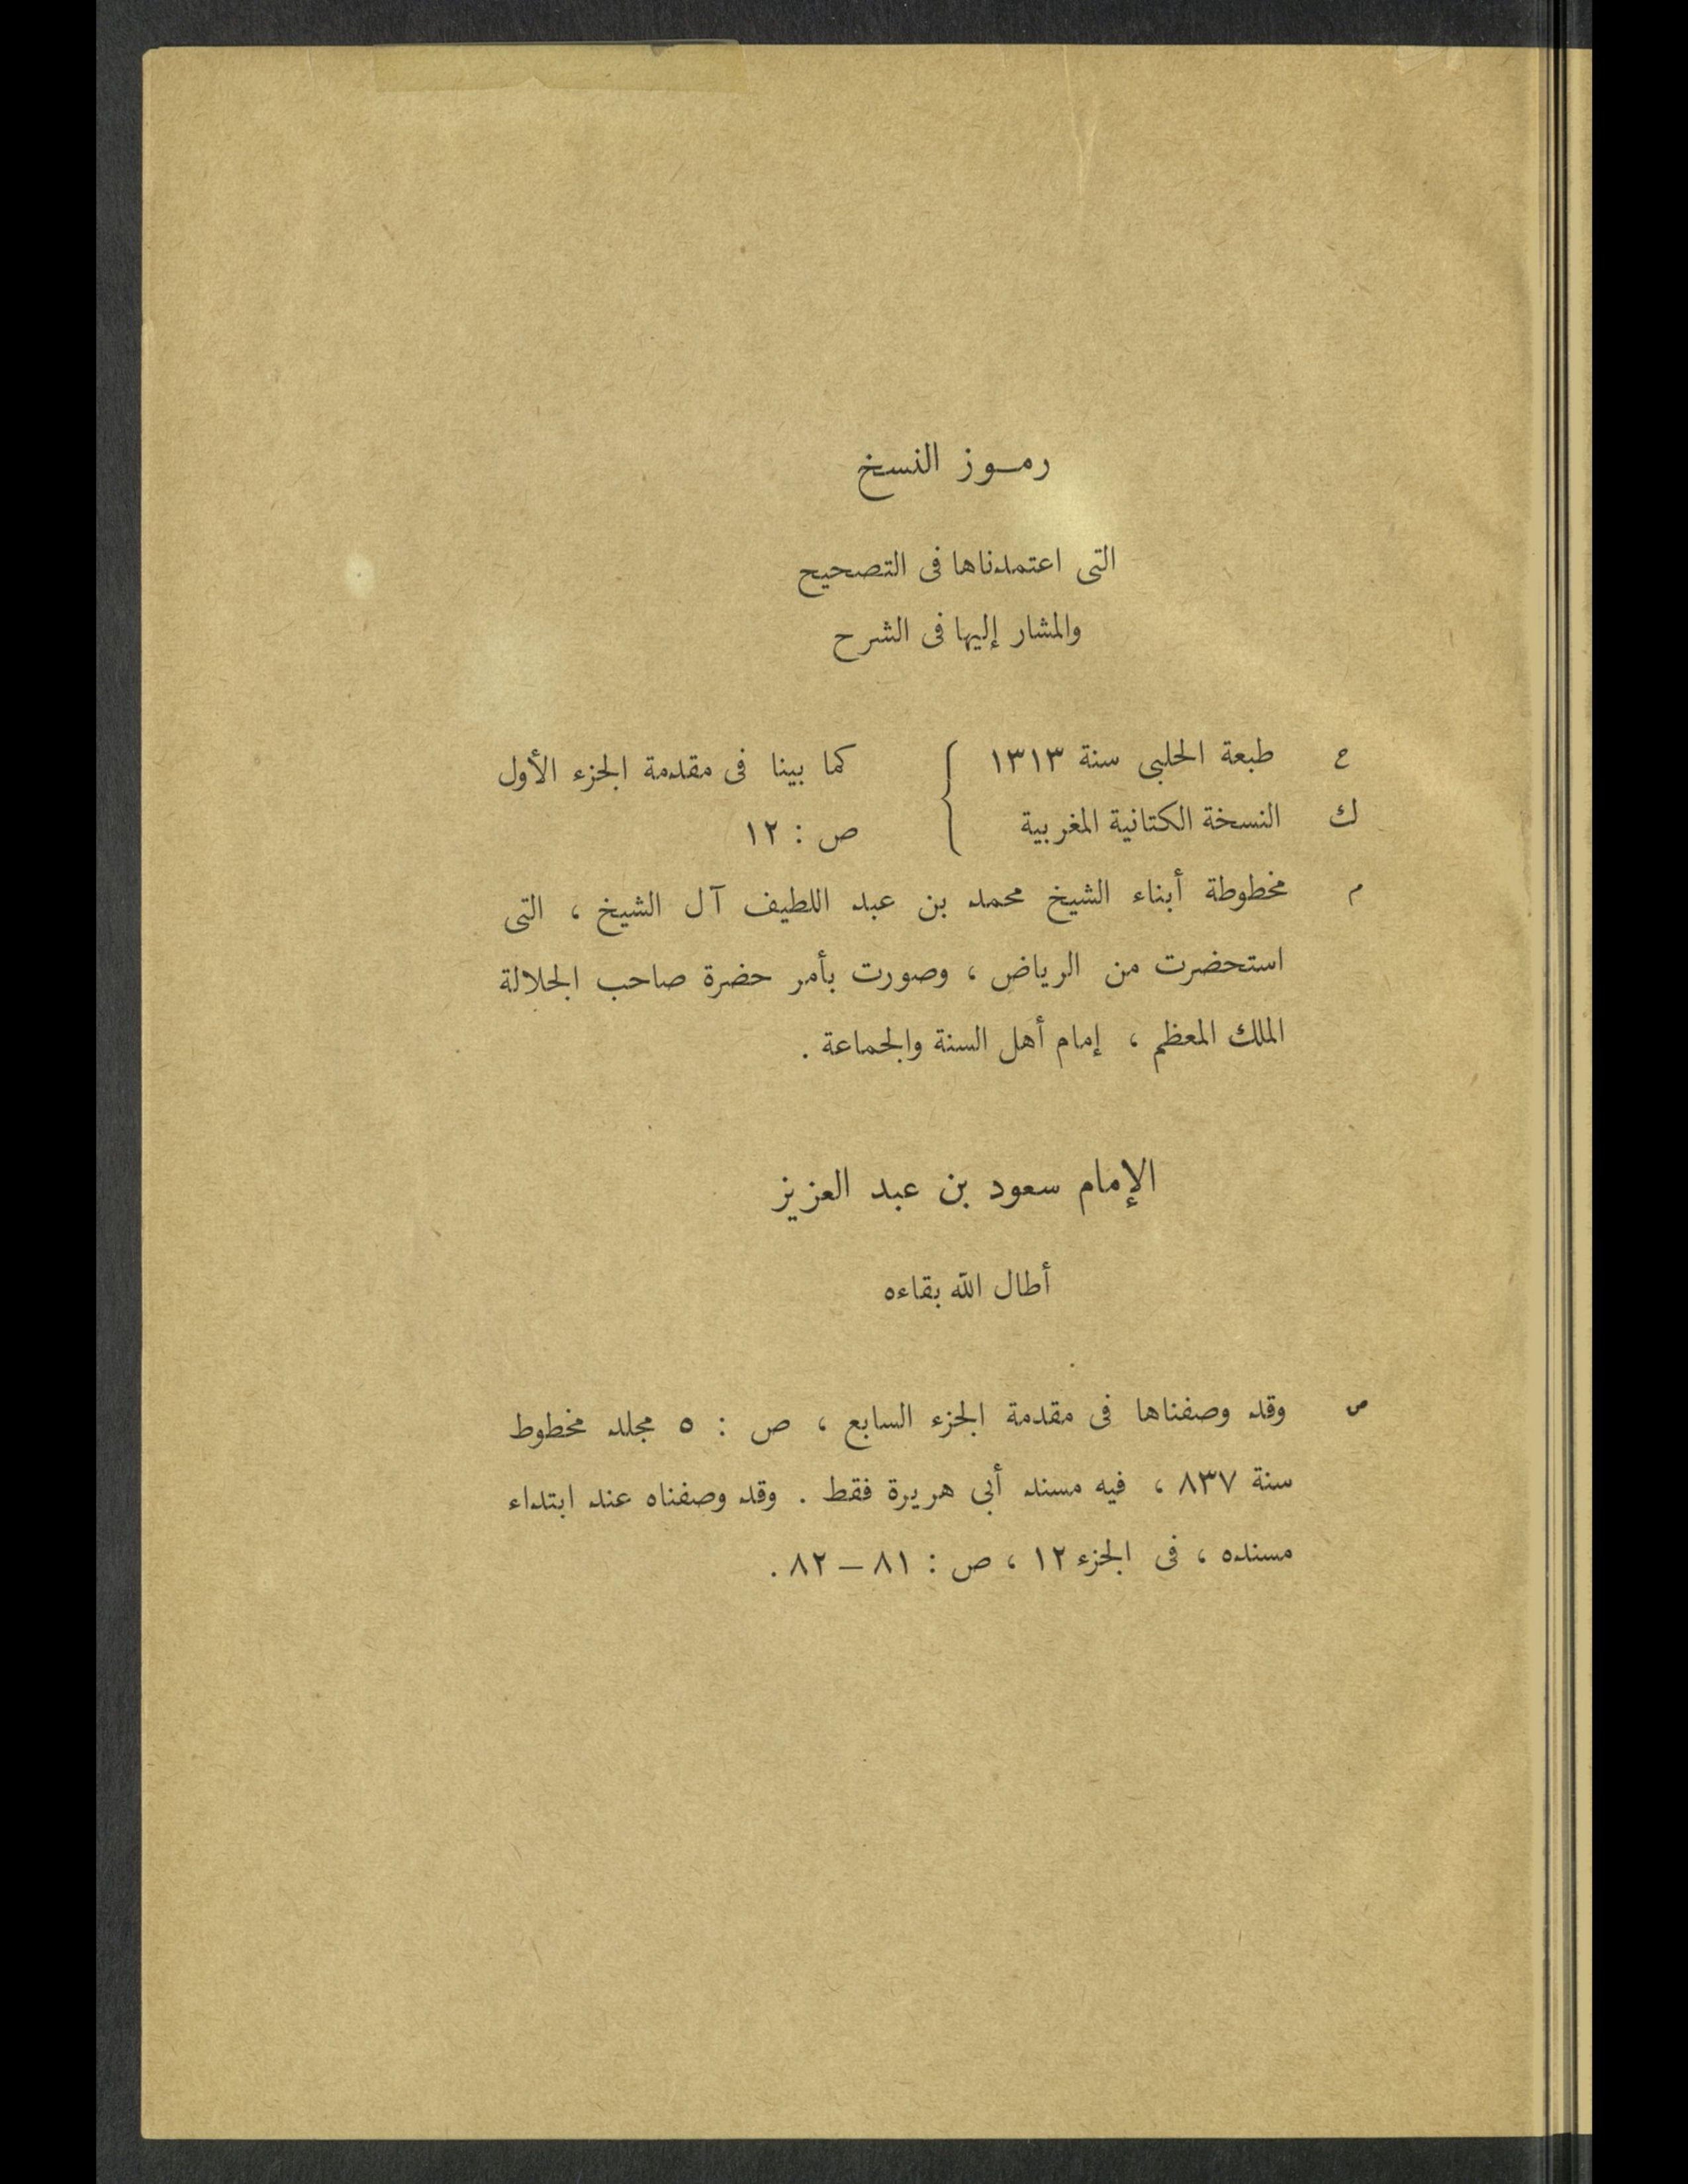 رمـوز النسخ
التى اعتمدناها فى التصحيح
والمشار إليها فى الشرح
ع طبعة الحلبى سنة ١٣١٣ } كما بينا فى مقدمة الجزء الأول
ك النسخة الكتانية المغربية } ص : ١٢
م مخطوطة أبناء الشيخ محمد بن عبد اللطيف آل الشيخ ، التى
استحضرت من الرياض ، وصورت بأمر حضرة صاحب الجلالة
الملك المعظم ، إمام أهل السنة والجماعة .
الإمام سعود بن عبد العزيز
أطال الله بقاءه
ص وقد وصفناها فى مقدمة الجزء السابع ، ص : ٥ مجلد مخطوط
سنة ٨٣٧ ، فيه مسند أبى هريرة فقط . وقد وصفناه عند ابتداء
مسنده ، فى الجزء ١٢ ، ص : ٨١ – ٨٢ .